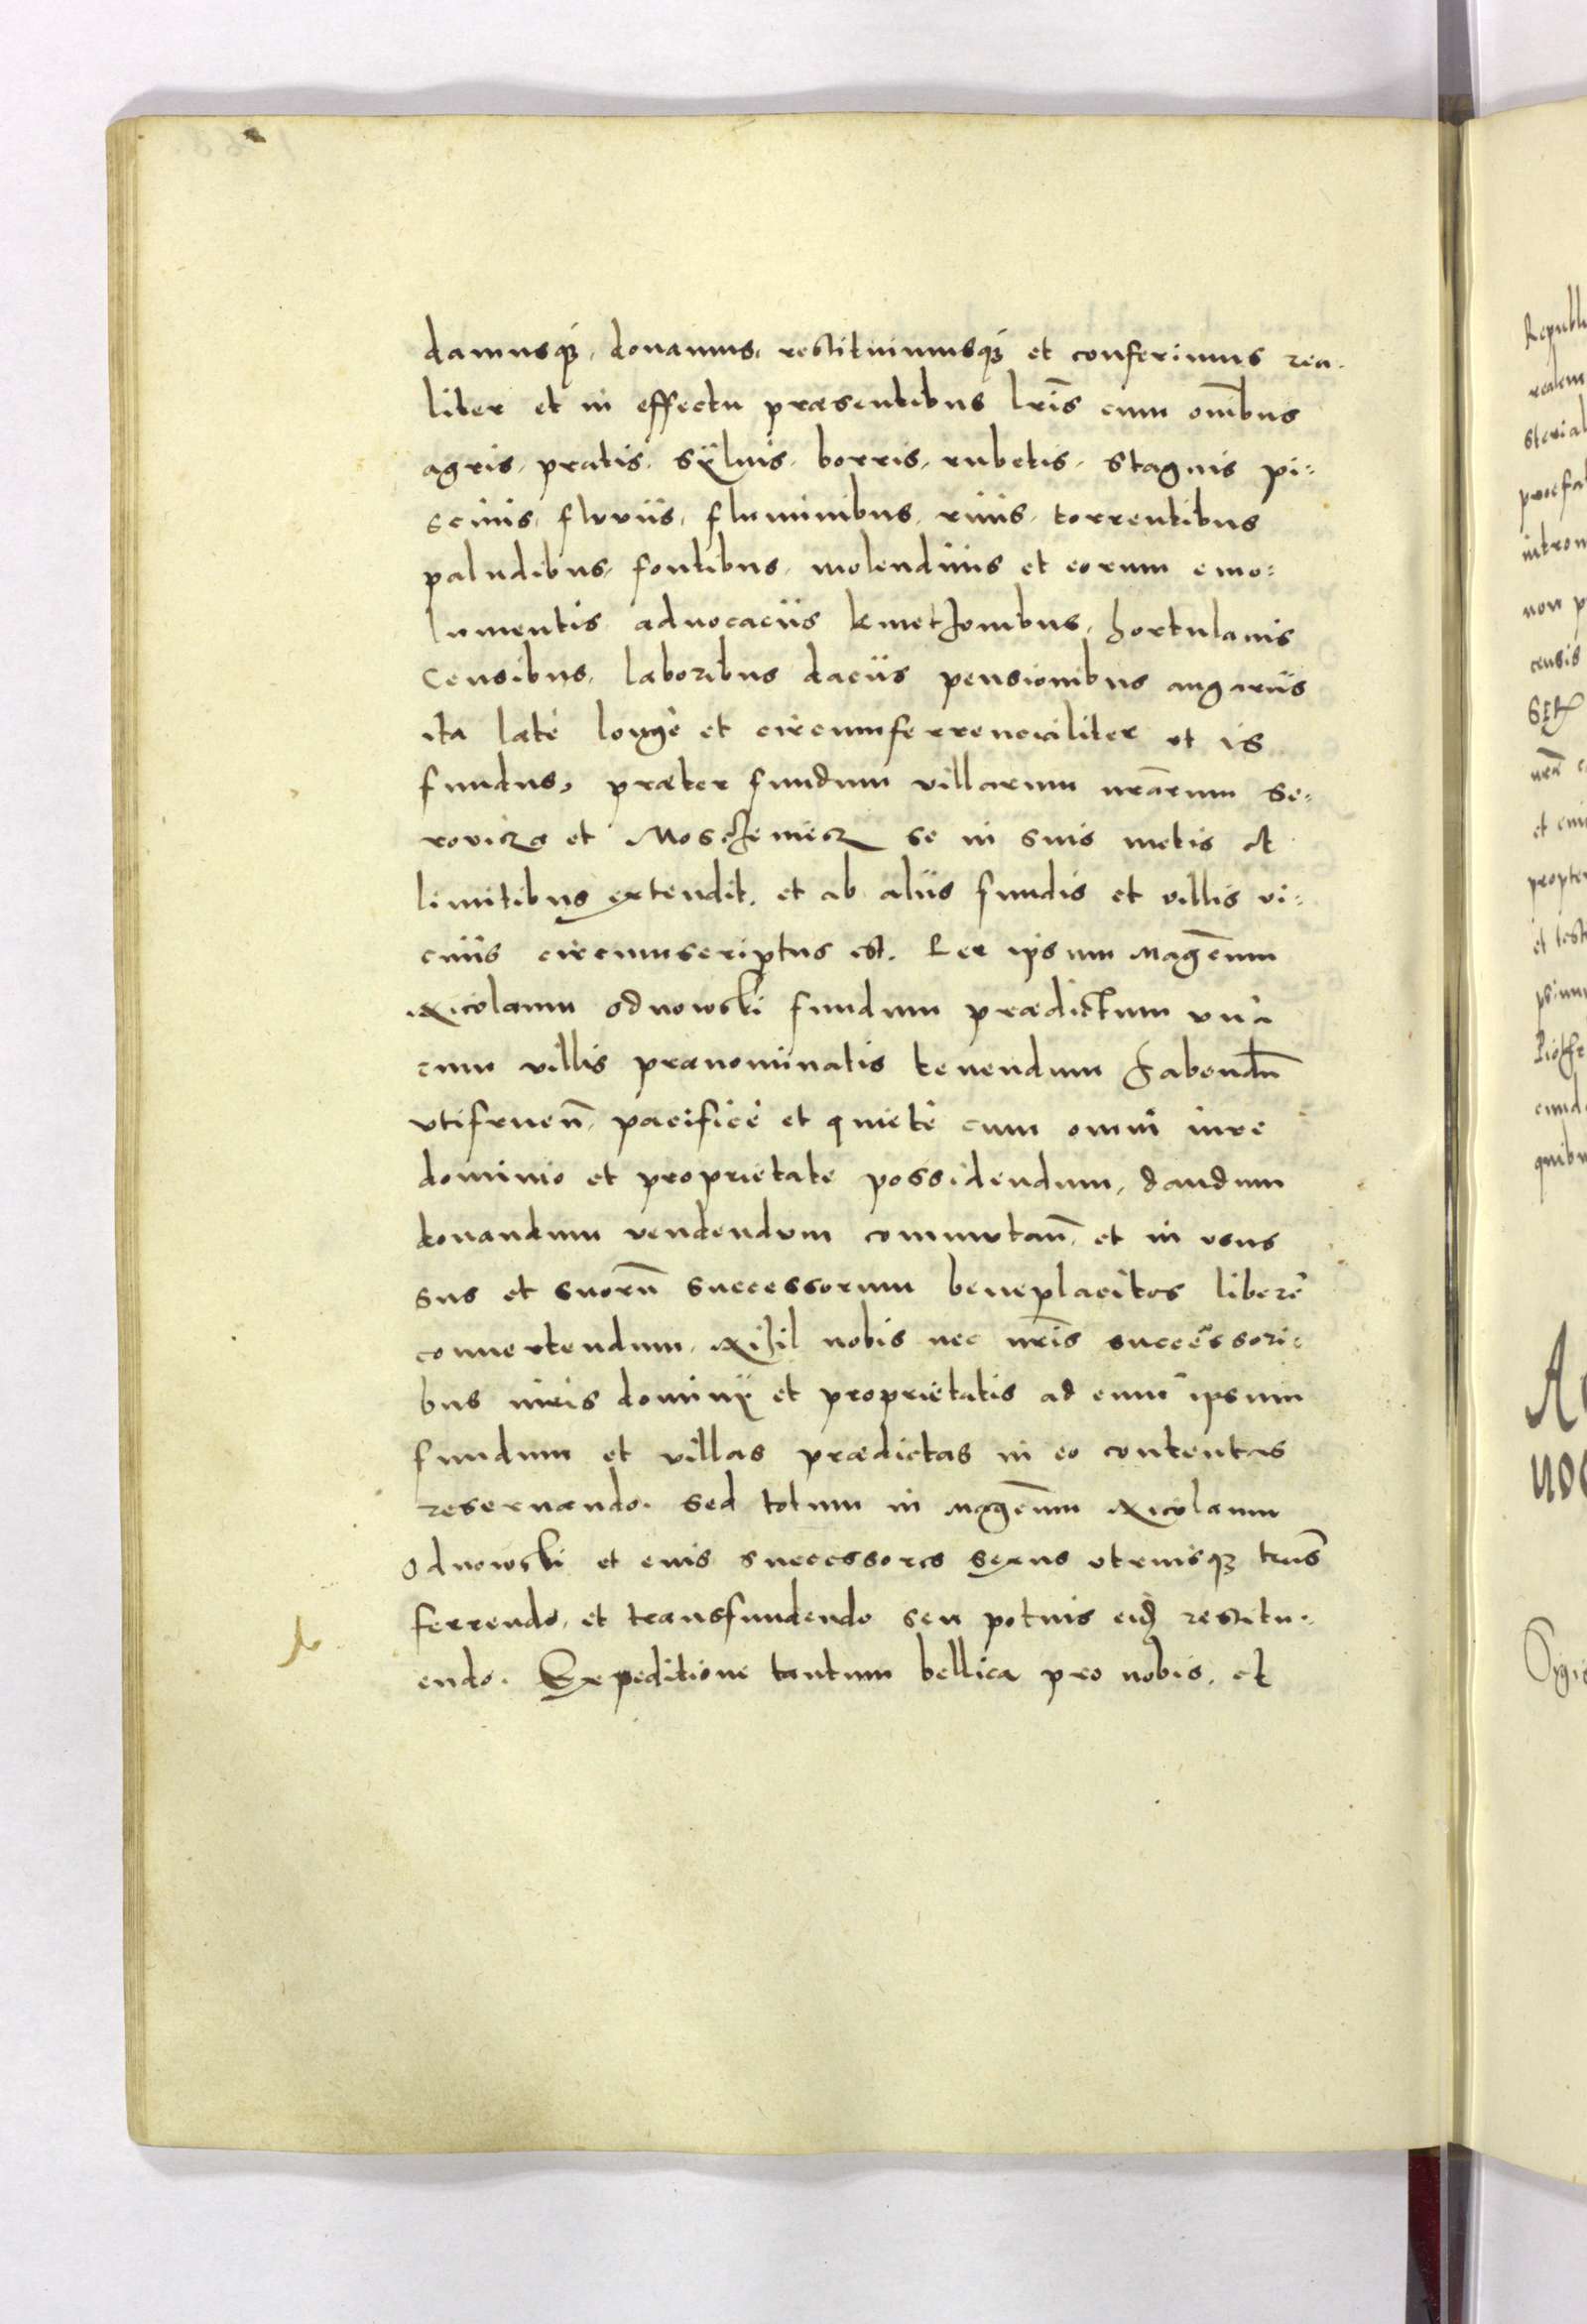 damusq₃, donamus, restituimusq₃ et conferimus rea-
liter et in effectu præsentibus lr̃is cum om̃ibus
agris, pratis, sÿluis, borris, rubetis, stagnis pi:
scinis, fluviis, fluminibus, riuis, torrentibus
paludibus, fontibus, molendinis et eorum emo:
lumentis aduocaciis kmethonibus, hortulanis
Censibus, laboribus daciis pensionibus angariis
ita latè longè et circumferrencialiter ut is
fundus, præter fundum villarum nr̃arum Se:
rovicza et Moschenicz se in suis metis et
limitibus extendit, et ab aliis fundis et villis vi:
ciniis circumscriptus est. Per ipsum Mag̃cum
Nicolaum Odnowski fundum prædictum unà
cum villis prænominatis tenendum habendũ
vtifruen̄, pacificè et quietè cum omni iure
dominio et proprietate possidendum, dandum
donandum vendendum commutan̄, et in usus
suos et suorũ successorum beneplacitos liberè
conuertendum, Nihil nobis nec nr̃is successori:
bus iuris dominÿ et proprietatis ad eum ipsum
fundum et villas prædictas in eo contentas
reseruando. Sed totum in Mag̃cum Nicolaum
Odnowski et eius successores sexus utriusq₃ trans
ferrendo, et transfundendo seu potius eid̃ restitu:
endo. Expeditione tantum bellica pro nobis, et